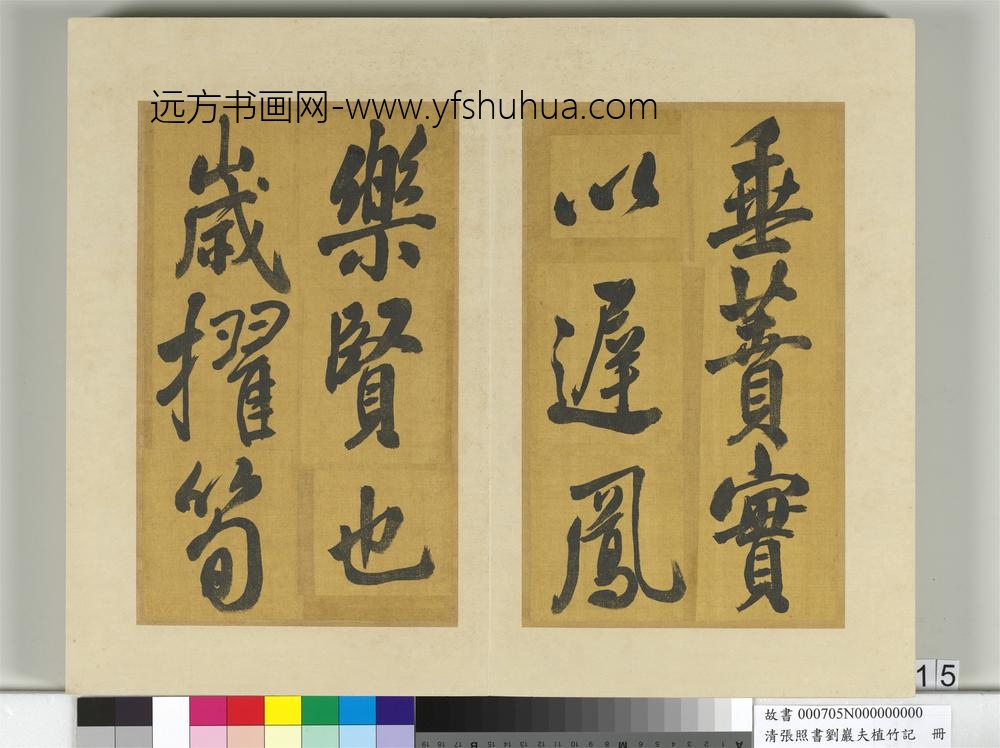 远方书画网-www.yfshuhua.com
垂蕡實
以遲鳳
樂賢也
歲擢筍
15
故書 000705N000000000
清張照書劉巖夫植竹記 冊